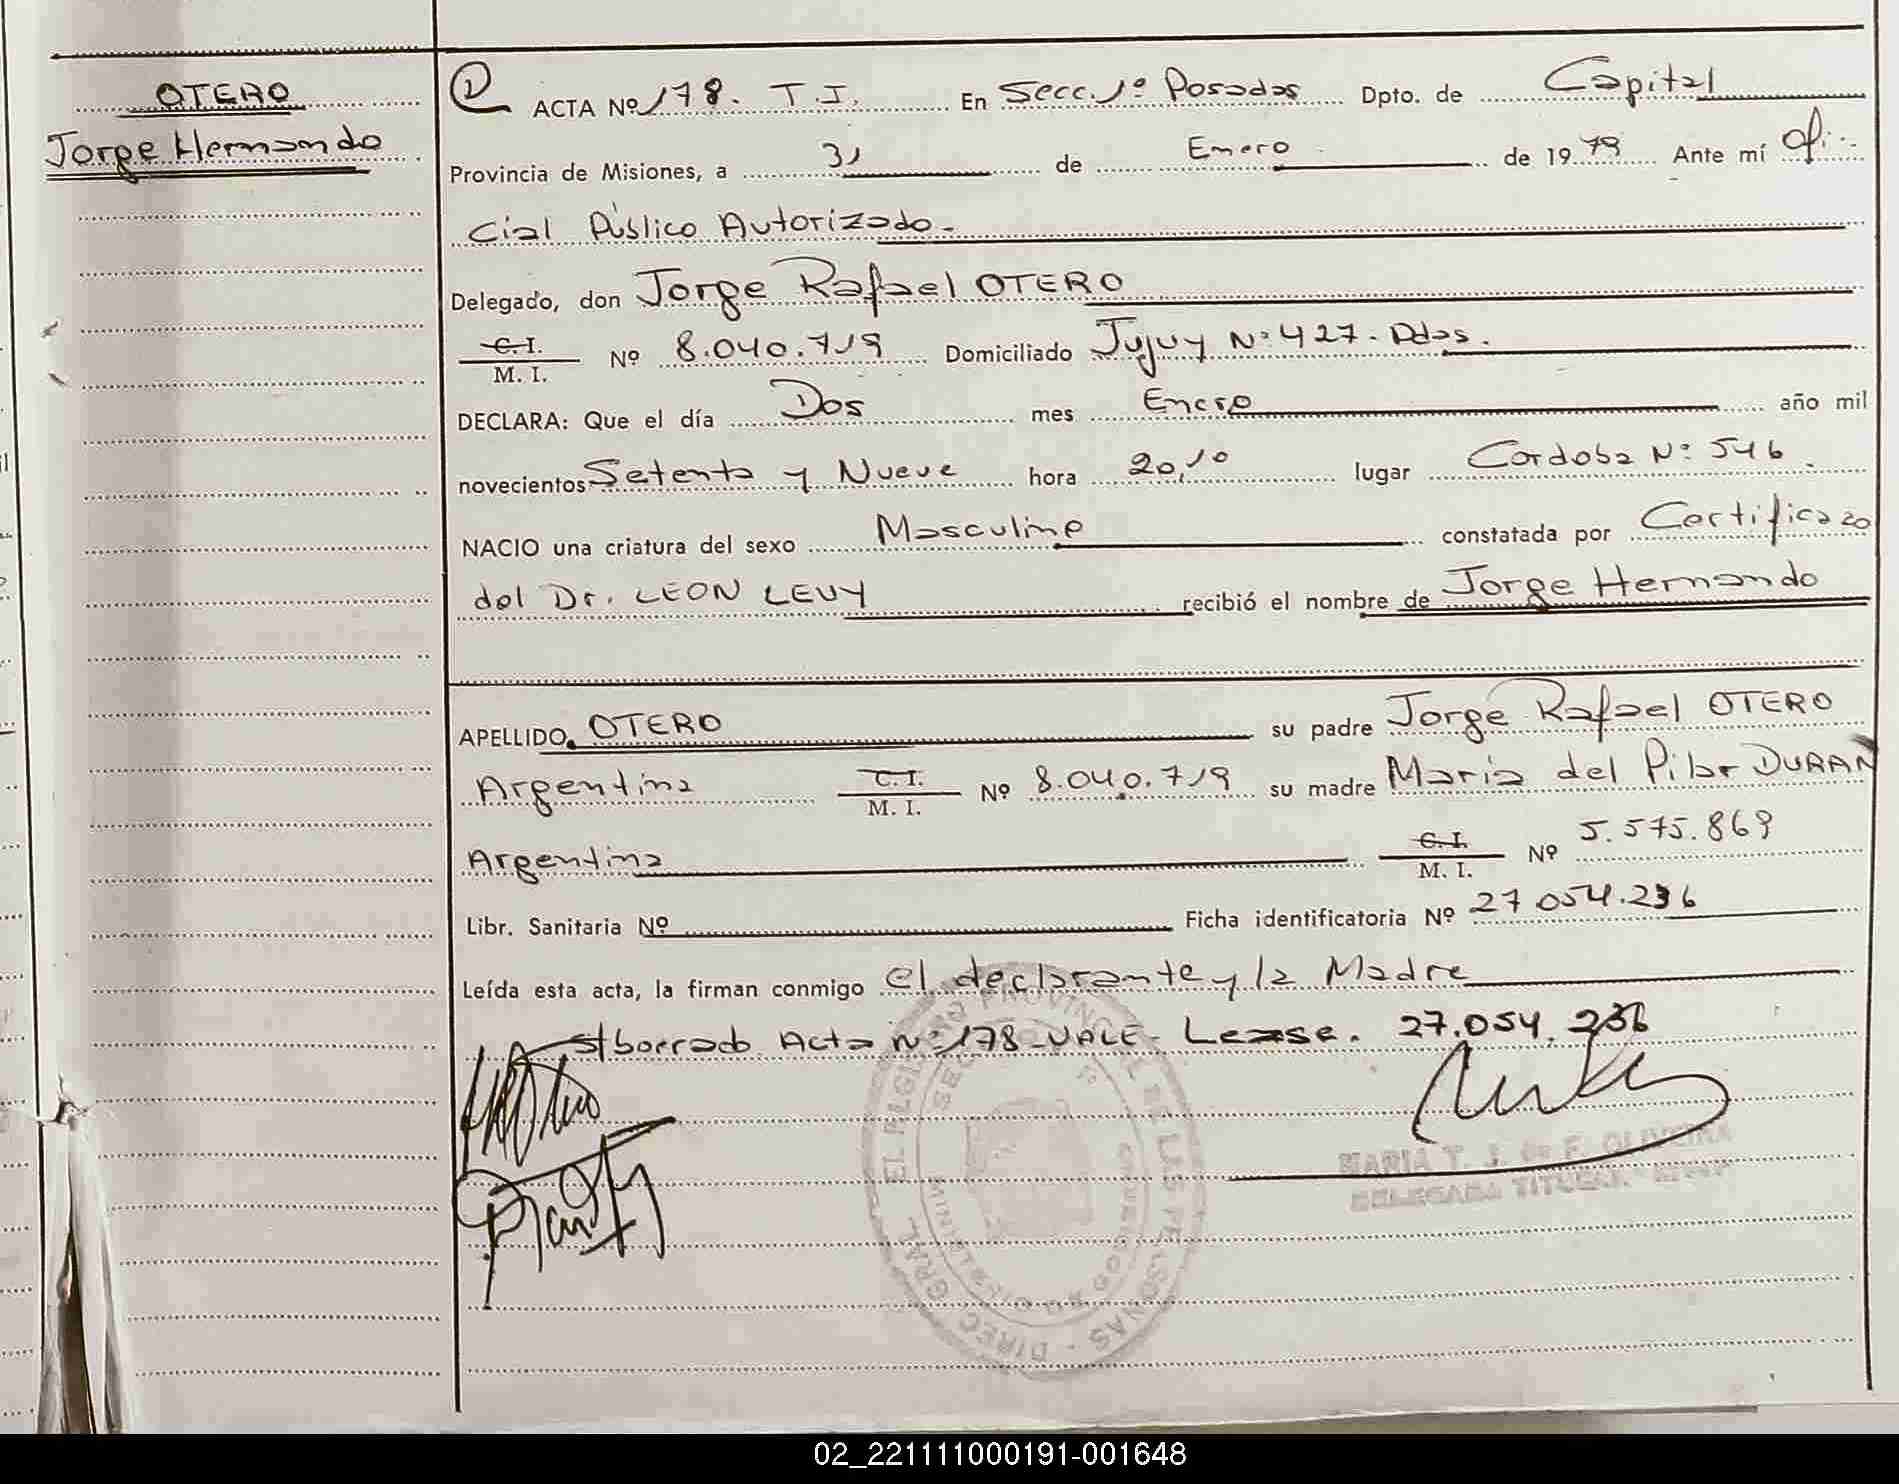 OTERO
Jorge Hernando
ACTA Nº 178. T.I. En Secc. 1º Posadas Dpto. de Capital
Provincia de Misiones, a 31 de Enero de 1979 Ante mí Ofi-
cial Público Autorizado.
Delegado, don Jorge Rafael OTERO
C.I. / M.I. Nº 8.040.719 Domiciliado Jujuy Nº 427. Pdas.
DECLARA: Que el día Dos mes Enero año mil
novecientos Setenta y Nueve hora 20,10 lugar Cordoba Nº 546.
NACIO una criatura del sexo Masculino constatada por Certificado
del Dr. LEON LEVY recibió el nombre de Jorge Hernando
APELLIDO OTERO su padre Jorge Rafael OTERO
Argentina C.I. / M.I. Nº 8.040.719 su madre María del Pilar DURAN
Argentina C.I. / M.I. Nº 5.575.869
Libr. Sanitaria Nº Ficha identificatoria Nº 27.054.236
Leída esta acta, la firman conmigo el declarante y la Madre
s/borrado Acta Nº 178 - VALE - Lease. 27.054.236
MARIA T. J. de F. OLIVEIRA
DELEGADA TITULAR
DIREC. GRAL. EL REGISTRO PROVINCIAL DE LAS PERSONAS
02_221111000191-001648